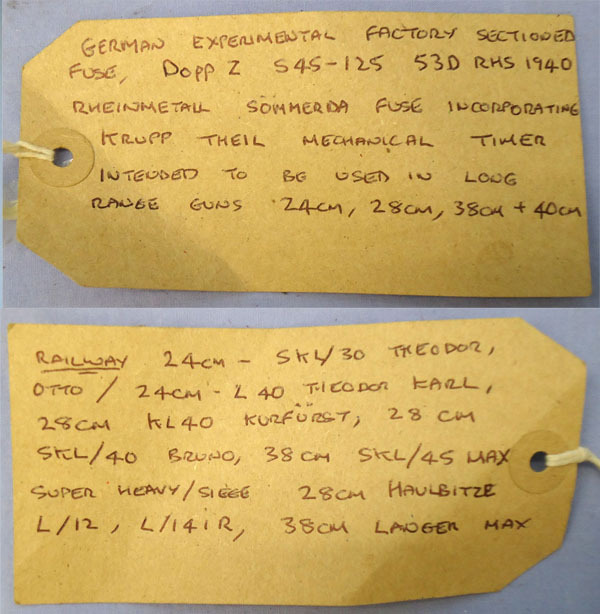 GERMAN EXPERIMENTAL FACTORY SECTIONED
FUSE, DOPP Z S45-125 53D RHS 1940
RHEINMETALL SOMMERDA FUSE INCORPORATING
KRUPP THEIL MECHANICAL TIMER
INTENDED TO BE USED IN LONG
RANGE GUNS 24CM, 28CM, 38CM + 40CM
RAILWAY 24CM - SKL/30 THEODOR,
OTTO / 24CM - L 40 THEODOR KARL,
28CM KL40 KURFÜRST, 28 CM
SKL/40 BRUNO, 38 CM SKL/45 MAX
SUPER HEAVY/SIEGE 28CM HAULBITZE
L/12, L/14iR, 38CM LANGER MAX